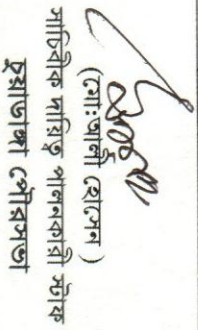 (মোঃআলী হোসেন)
সাচিবিক দায়িত্ব পালনকারী স্টাফ
চুয়াডাঙ্গা পৌরসভা